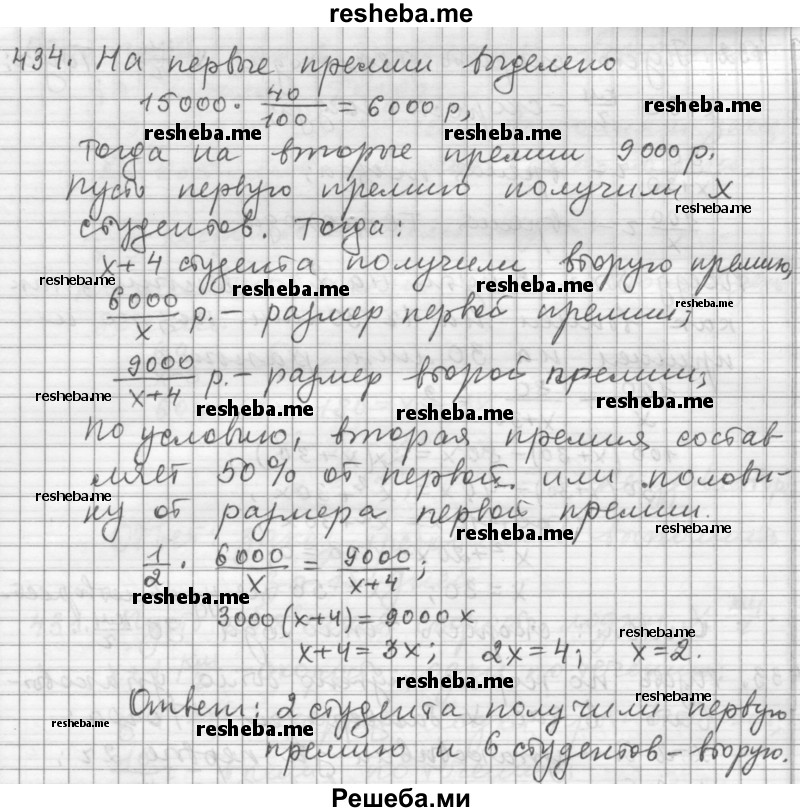 resheba.me
434. На первые премии выделено
15000 · 40/100 = 6000 р,
resheba.me
resheba.me
Тогда на вторые премии 9000 р.
Пусть первую премию получили x
resheba.me
студентов. Тогда:
x+4 студента получили вторую премию,
resheba.me
resheba.me
resheba.me
6000/x р. – размер первой премии;
resheba.me
9000/x+4 р. – размер второй премии;
resheba.me
resheba.me
resheba.me
resheba.me
По условию, вторая премия состав-
ляет 50% от первой. или полови-
resheba.me
ну от размера первой премии.
resheba.me
resheba.me
1/2 · 6000/x = 9000/x+4;
resheba.me
3000(x+4) = 9000x
resheba.me
x+4 = 3x; 2x = 4; x = 2.
resheba.me
resheba.me
Ответ: 2 студента получили первую
resheba.me
resheba.me
премию и 6 студентов – вторую.
Решеба.ми